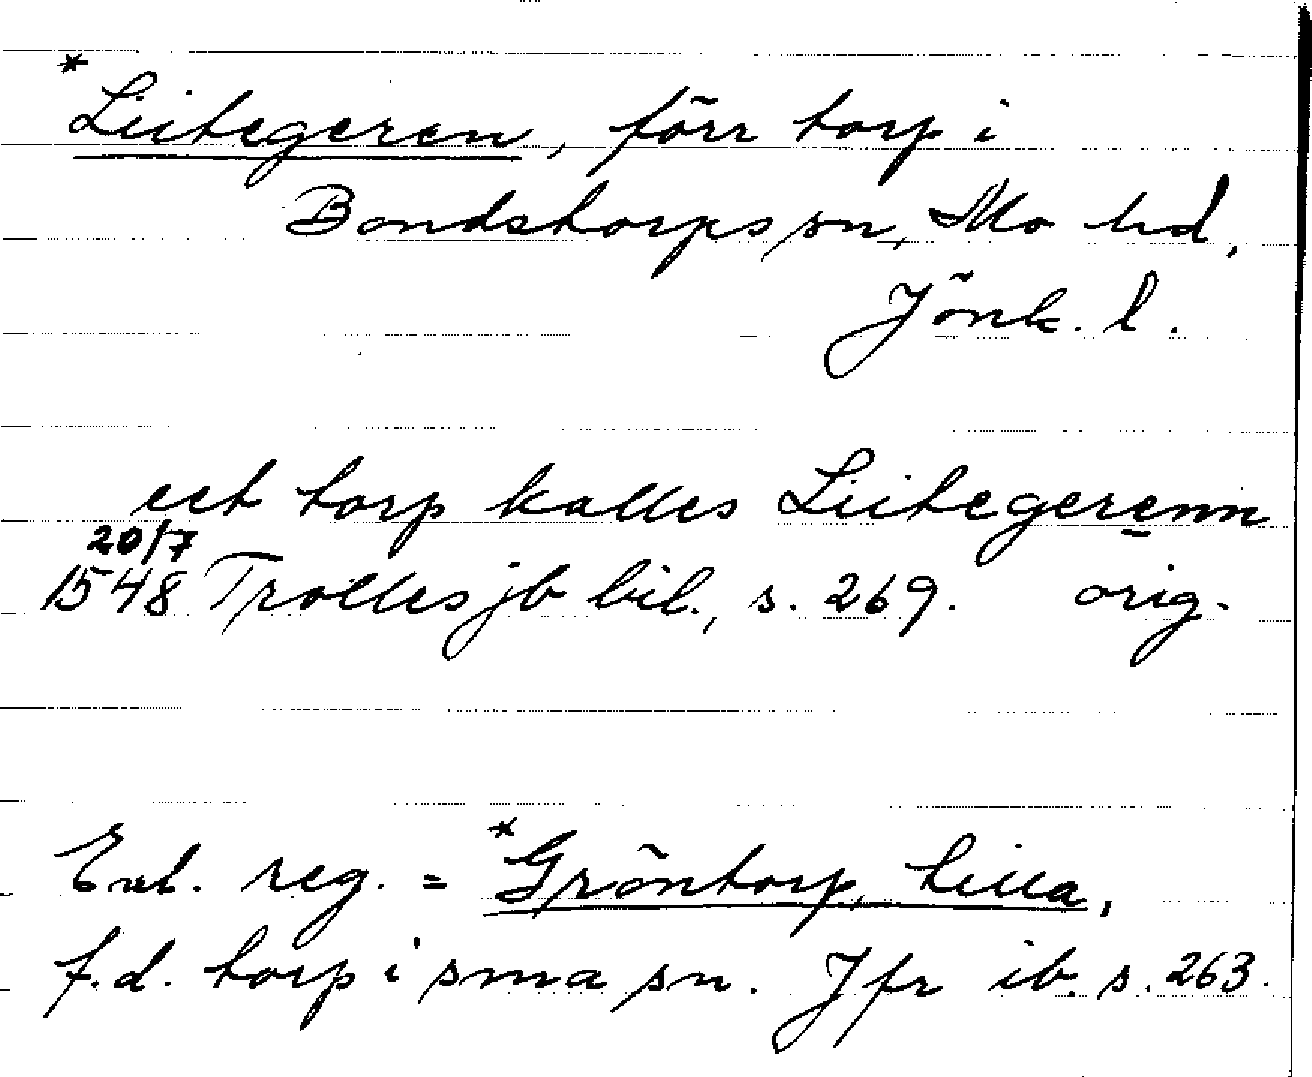 *Liitegeren, förr torp i
Bondstorps sn, Mo hd,
Jönk. l.
eet torp kalles Liitegerenn
20/7
1548 Trolles jb bil., s. 269. orig.
Enl. reg. = *Gröntorp, Lilla,
f.d. torp i sma sn. Jfr ib. s. 263.